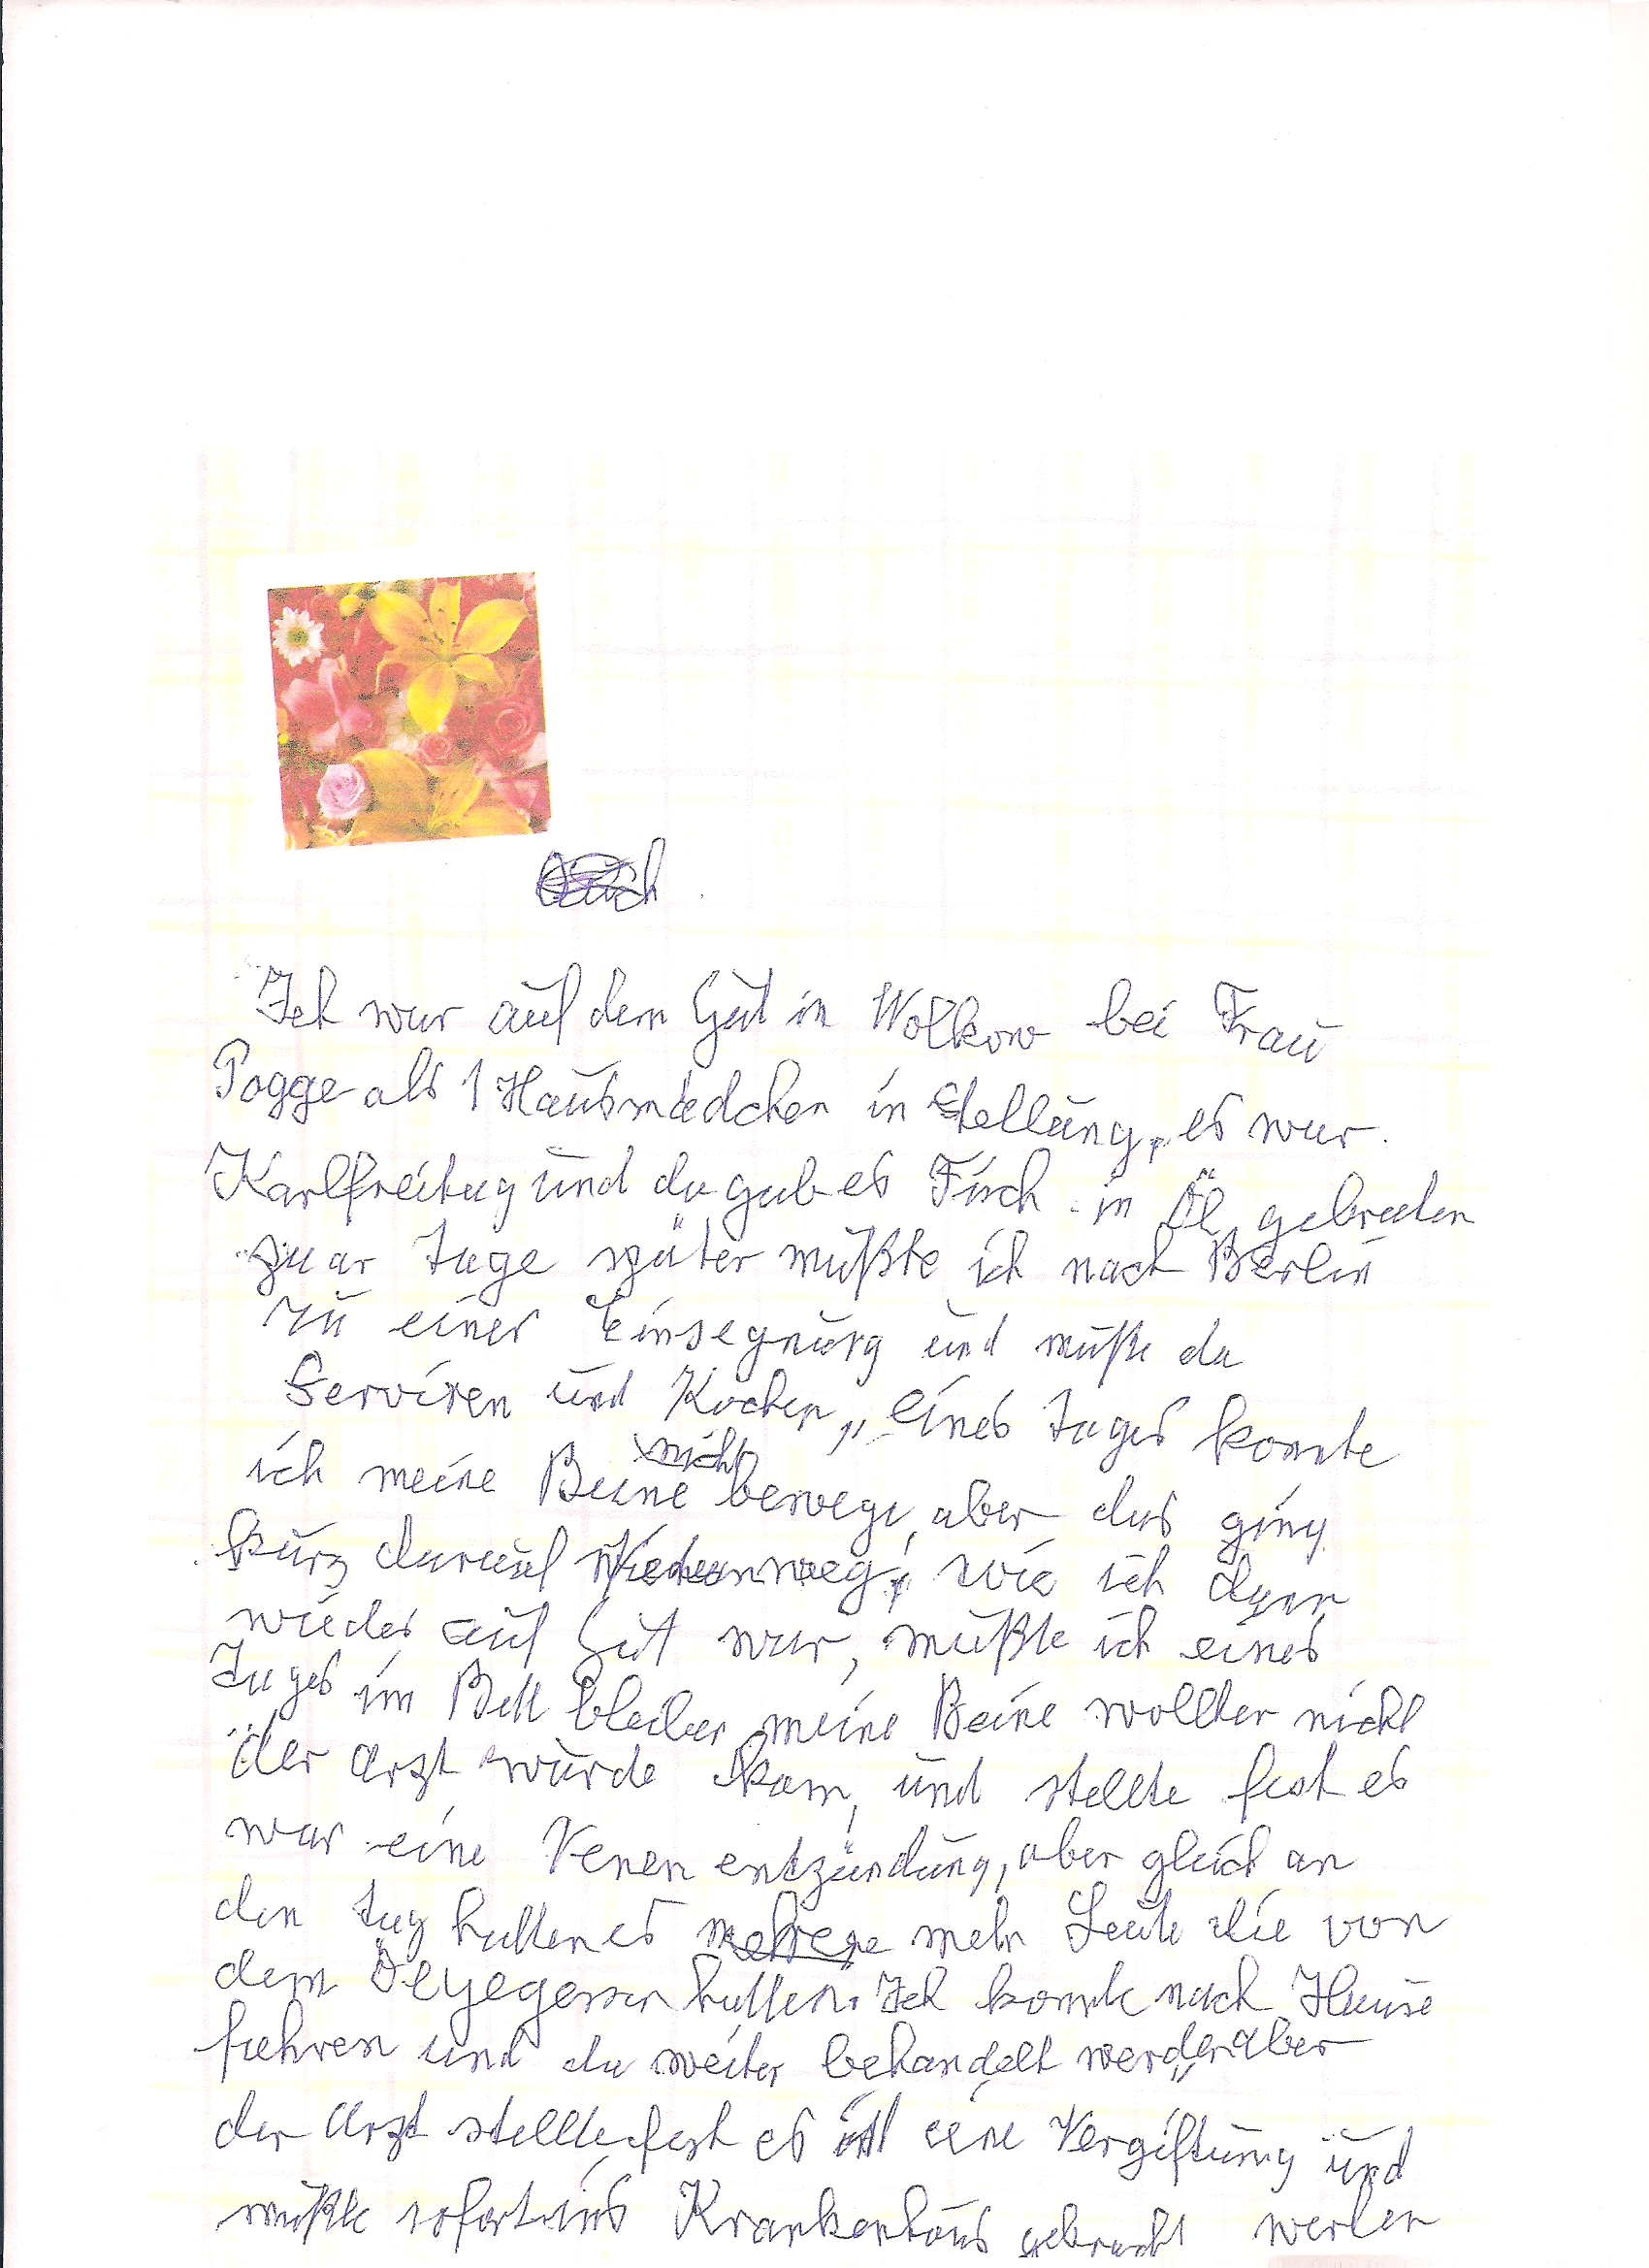 Ich war auf dem Gut in Wolkow bei Frau
Pogge als 1 Hausmädchen in Stellung, es war
Karlfreitag und da gab es Fisch in Öl gebraten
paar Tage später mußte ich nach Berlin
zu einer Einsegnung und mußte da
Serviren und Kochen, eines Tages konnte
ich meine Beine nicht bewege, aber das ging
kurz darauf wieder weg, wie ich dann
wieder auf Gut war, mußte ich eines
Tages im Bett bleiben meine Beine wollten nicht
der Arzt wurde kam, und stellte fest es
war eine Venen entzündung, aber gleich an
den Tag hatten es mehrere mehr Leute die von
dem Öl gegessen hatten. Ich konnte nach Hause
fahren und da weiter behandelt werden, aber
der Arzt stellte fest es ist eine Vergiftung und
mußte sofort ins Krankenhaus gebracht werden